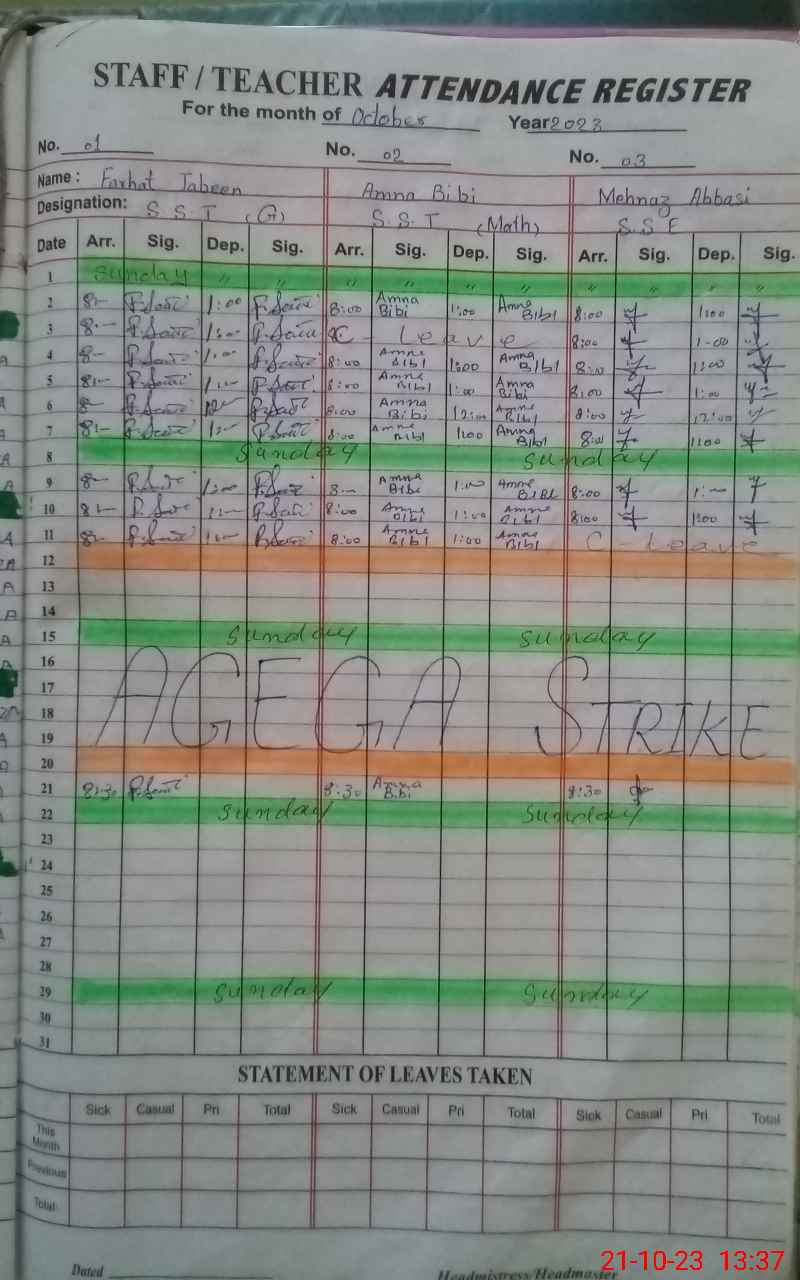 STAFF / TEACHER ATTENDANCE REGISTER
For the month of October Year 2023
No. 01 No. 02 No. 03
Name : Farhat Jabeen Amna Bibi Mehnaz Abbasi
Designation: S.S.T (G) S.S.T (Math) S.S.E
Date Arr. Sig. Dep. Sig. Arr. Sig. Dep. Sig. Arr. Sig. Dep. Sig.
1 Sunday " " " " " " " " " "
2 8- 1:00 8:00 Amna Bibi 1:00 Amna Bibi 8:00 1:00
3 8:- C - Leave 8:00 1-00
4 8- 8:00 Amna Bibi 1:00 Amna Bibi 8:00 1:00
5 8:- 8:00 Amna Bibi 1:00 Amna Bibi 8:00 1:00
6 8- 8:00 Amna Bibi 12:00 Amna Bibi 8:00 12:00
7 8:- 8:00 Amna Bibi 1:00 Amna Bibi 8:00 1:00
8 Sunday Sunday
9 8- 1:00 8- Amna Bibi 1:00 Amna Bibi 8:00 1:-
10 8:- 8:00 Amna Bibi 1:00 Amna Bibi 8:00 1:00
11 8- 8:00 Amna Bibi 1:00 Amna Bibi C Leave
12
13
14
15 Sunday Sunday
16
17
18 AGEGA STRIKE
19
20
21 8:30 8:30 Amna Bibi 8:30
22 Sunday Sunday
23
24
25
26
27
28
29 Sunday Sunday
30
31
STATEMENT OF LEAVES TAKEN
Sick Casual Pri Total Sick Casual Pri Total Sick Casual Pri Total
This Month
Previous
Total
Dated Headmistress/Headmaster
21-10-23 13:37